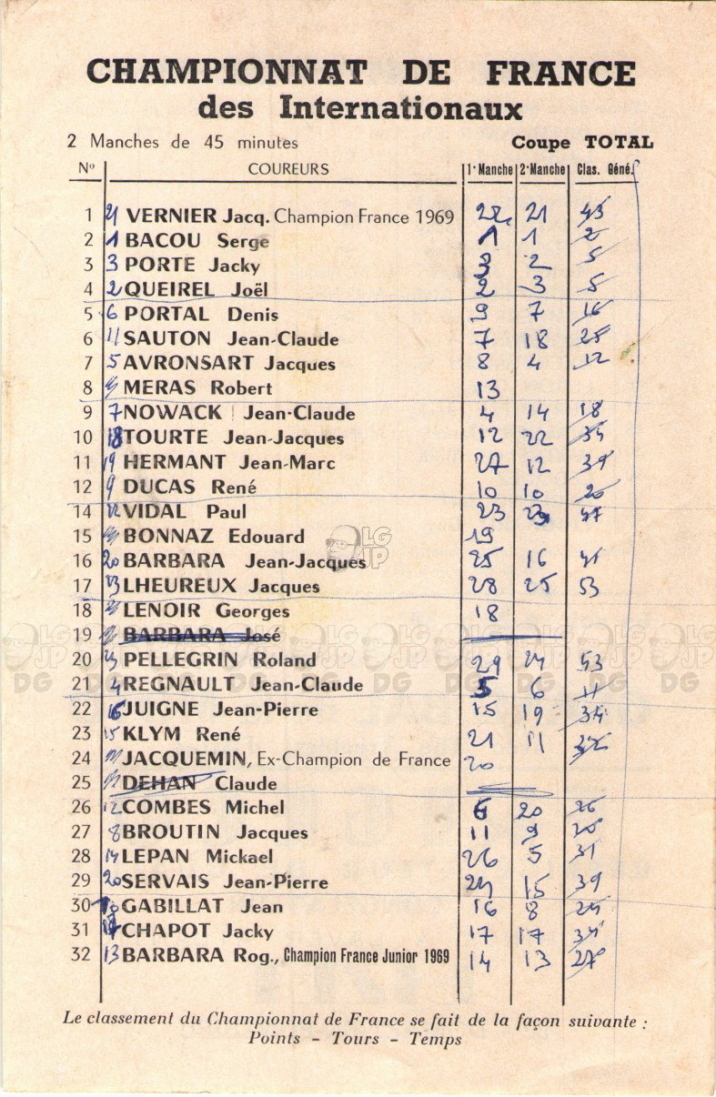 CHAMPIONNAT DE FRANCE
des Internationaux
2 Manches de 45 minutes Coupe TOTAL
No COUREURS 1e Manche 2e Manche Clas. Géné.
1 21 VERNIER Jacq. Champion France 1969 22 21 43
2 1 BACOU Serge 1 1 2
3 3 PORTE Jacky 3 2 5
4 2 QUEIREL Joël 2 3 5
5 6 PORTAL Denis 9 7 16
6 11 SAUTON Jean-Claude 7 18 25
7 5 AVRONSART Jacques 8 4 12
8 MERAS Robert 13
9 7 NOWACK Jean-Claude 4 14 18
10 18 TOURTE Jean-Jacques 12 22 34
11 19 HERMANT Jean-Marc 27 12 39
12 9 DUCAS René 10 10 20
14 VIDAL Paul 23 23
15 BONNAZ Edouard 19
16 20 BARBARA Jean-Jacques 25 16 41
17 LHEUREUX Jacques 28 25 53
18 LENOIR Georges 18
19 BARBARA José
20 PELLEGRIN Roland 29 24 53
21 4 REGNAULT Jean-Claude 5 6 11
22 16 JUIGNE Jean-Pierre 15 19 34
23 15 KLYM René 21 11 32
24 JACQUEMIN, Ex-Champion de France 20
25 DEHAN Claude
26 12 COMBES Michel 6 20 26
27 8 BROUTIN Jacques 11 9 20
28 14 LEPAN Mickael 26 5 31
29 20 SERVAIS Jean-Pierre 24 15 39
30 10 GABILLAT Jean 16 8 24
31 17 CHAPOT Jacky 17 17 34
32 13 BARBARA Rog., Champion France Junior 1969 14 13 27
Le classement du Championnat de France se fait de la façon suivante :
Points - Tours - Temps